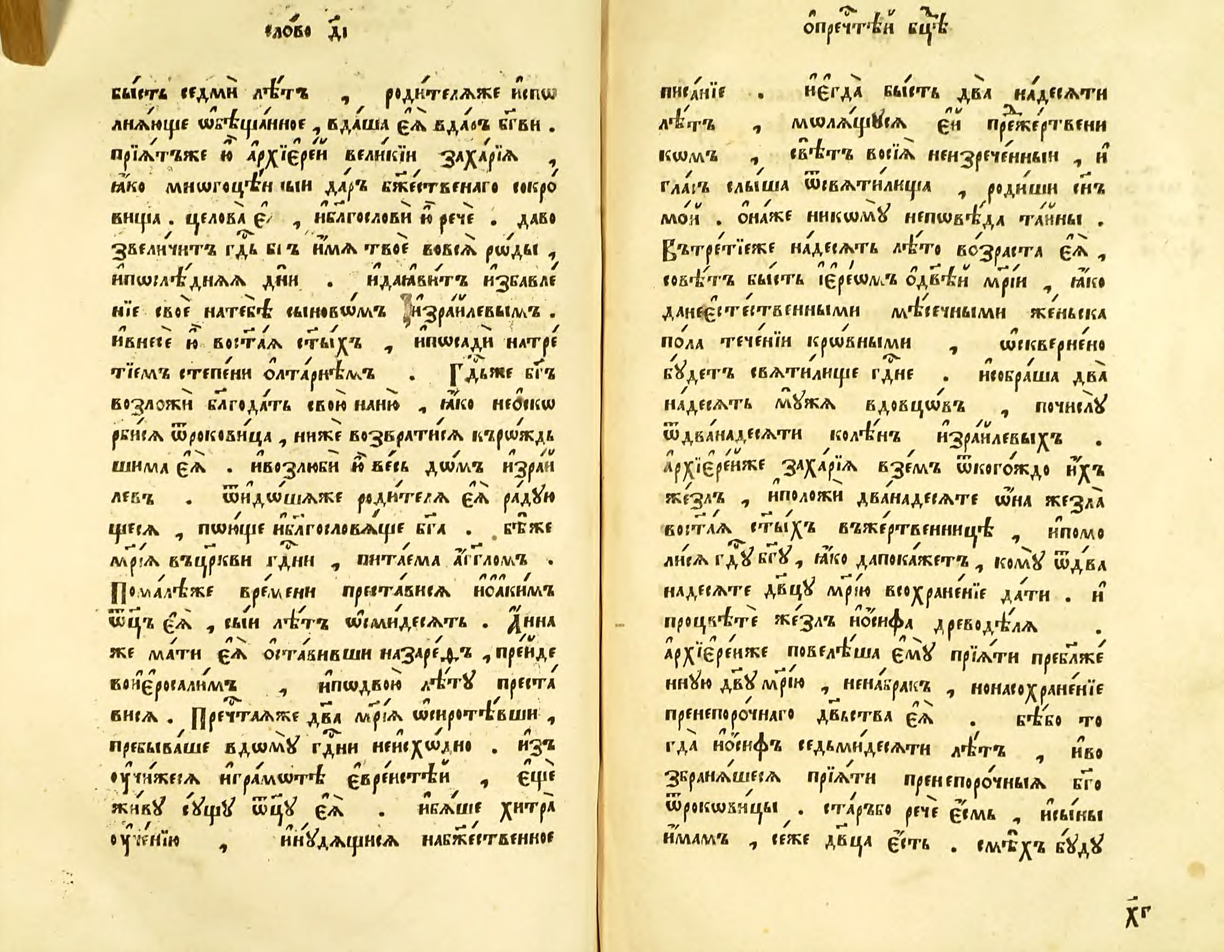 сло́во д҃і
бы́сть седмѝ лѣ́тъ , роди́телѧже испѡ
лнѧ́юще ѡ҆бѣща́нное , вда́ша є҆ѧ̀ вда́ръ бг҃ви .
прїѧ́тъже ю҆̀ а҆рхїєре́й вели́кїи заха́рїѧ ,
ꙗ҆́ко мнѡгоцѣ́нныи да́ръ бж҃е́ственаго сокро́
вища . целова̀ є҆ѧ̀ , и҆благословѝ ю҆̀ речѐ . даво
звели́читъ гдⷭ҇ь бг҃ъ и҆́мѧ твоѐ вовсѧ̀ рѡ́ды ,
и҆пѡслѣ́днѧѧ дни̑ . и҆даꙗ҆ви́тъ и҆збавле́
нїе своѐ натебѣ̀ сыновѡ́мъ и҆зраи́левымъ .
и҆внесѐ ю҆̀ восвѧта́ѧ ст҃ы́хъ , и҆пѡсадѝ натре́
тїемъ степе́ни о҆лтарнѣ́мъ . Гдⷭ҇ьже бг҃ъ
возложѝ бл҃года́ть свою̀ наню̀ , ꙗ҆́ко неѡскѡ
рби́сѧ ѿрокови́ца , ниже возврати́сѧ къро́ждь
шима є҆ѧ̀ . и҆возлюбѝ ю҆̀ ве́сь до́мъ и҆зраи́
левъ . ѿидѡ́шаже роди́телѧ є҆ѧ̀ ра́дую
щесѧ , пою́ще и҆бл҃гословѧ́ще бг҃а . бѣ́же
мр҃і́ѧ въцр҃кви гдⷭ҇ни , пита́ема а҆́гг҃ломъ .
Пома́лѣже вре́мени преста́висѧ и҆оаки́мъ
ѿц҃ъ є҆ѧ̀ , сы́и лѣ́тъ ѡ҆смидесѧ́тъ . А҆́нна
же ма́ти є҆ѧ̀ ѡ҆ста́вивши назаре́ѳъ , пре́йде
воиєросали́мъ , и҆пѡдвою̀ лѣ́ту преста́
висѧ . Пречⷭ҇таѧже дв҃а мр҃і́ѧ ѡ҆сиротѣ́вши ,
пребыва́ше вдому̀ гдⷭ҇ни неисхо́дно . и҆зъ
ѹ҆чи́жесѧ и҆гра́мотѣ є҆вре́йстѣй , є҆щѐ
жи́ву су́щу ѿц҃у̀ є҆ѧ̀ . и҆бѧ́ше хитра̀
ѹ҆че́нїю , и҆нудѧ́щисѧ набж҃е́ственное
ѡ҆пречⷭ҇тѣй бц҃ѣ
писа́нїе . и҆єгда̀ бы́сть два̀ на́десѧти
лѣ́тъ , молѧ́щусѧ є҆́й пре́жертвени
комъ , свѣ́тъ восїѧ̀ неизрече́нныи , и҆
гла́съ слы́ша ѿсвѧти́лища , роди́ши сн҃ъ
мо́й . ѻ҆на́же нико́му непѡвѣ́да та́йны .
Вътре́тїеже на́десѧть лѣ́то во́зраста є҆ѧ̀ ,
совѣ́тъ бы́сть і҆єре́ѡмъ о҆дв҃ѣй мр҃і́и , ꙗ҆́ко
данеєсте́ственными мѣ́сечными же́ньска
по́ла тече́нїи кро́вными , ѡ҆скверне́но
бу́детъ свѧти́лище гдⷭ҇не . и҆собра́ша два̀
на́десѧть му́жѧ вдовцо́въ , почислу̀
ѿдвана́десѧти колѣ́нъ и҆зра́илевыхъ .
А҆рхїєре́йже заха́рїѧ взе́мъ ѿкого́ждо и҆́хъ
же́злъ , и҆положѝ двана́десѧте ѡ҆́на жезла̀
восвѧта́ѧ ст҃ы́хъ въже́ртвенницѣ , и҆помо
ли́сѧ гдⷭ҇у бг҃у , ꙗ҆́ко дапока́жетъ , кому̀ ѿдва
на́десѧте дв҃цу мр҃і́ю всохране́нїе да́ти . и҆
процвѣтѐ же́злъ и҆́осифа древодѣ́лѧ .
А҆рхїєре́йже повелѣ́ша є҆му̀ прїѧ́ти пребл҃же́
нную дв҃у мр҃і́ю , ненабра́къ , нонасохране́нїе
пренепоро́чнаго дв҃ьства є҆ѧ̀ . бѣ́бо то
гда̀ и҆́осифъ се́дьмидесѧти лѣ́тъ , и҆во
збранѧ́шесѧ прїѧ́ти пренепоро́чныѧ бг҃о
ѿрокови́цы . ста́ръбо речѐ є҆́смь , и҆сы́ны
и҆́мамъ , се́же дв҃ца є҆́сть . смѣ́хъ бу́ду
х҃г